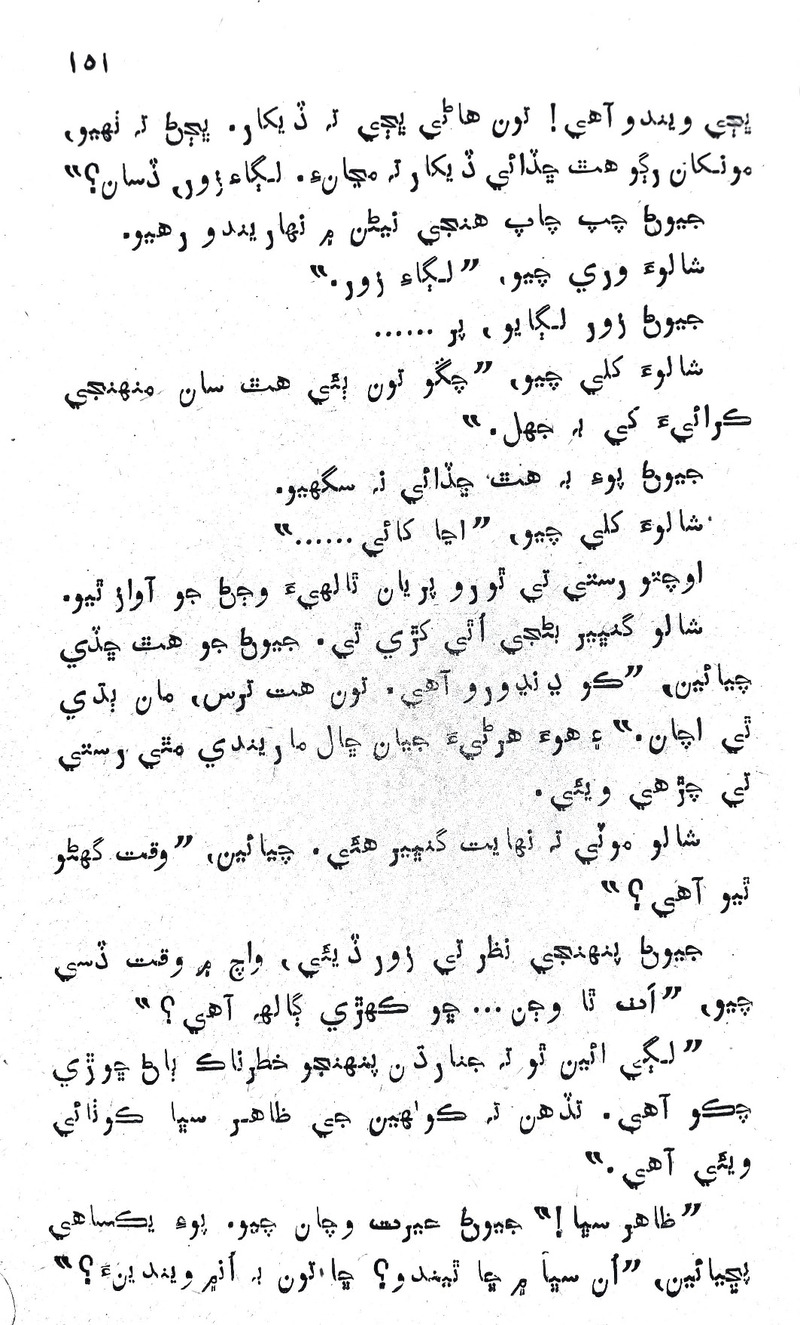 ١٥١
ڀڄي ويندو آهي! تون هاڻي ڀڄي ته ڏيکار. ڀڄڻ ته ٺهيو،
مونکان رڳو هٿ ڇڏائي ڏيکار ته مڃانءِ. لڳاءِ زور، ڏسان؟“
جيوڻ چپ چاپ هنجي نيڻن ۾ نهاريندو رهيو.
شالوءَ وري چيو، ”لڳاءِ زور.“
جيوڻ زور لڳايو، پر ......
شالوءَ کلي چيو، ”چڱو تون ٻئي هٿ سان منهنجي
ڪرائيءَ کي به جهل.“
جيوڻ پوءِ به هٿ ڇڏائي نه سگهيو.
شالوءَ کلي چيو، ”اڃا کائي......“
اوچتو رستي تي ٿورو پريان ٿالهيءَ وڄڻ جو آواز ٿيو.
شالو گنڀير بڻجي اُٿي کڙي ٿي. جيوڻ جو هٿ ڇڏي
چيائين، ”ڪو ڍنڍورو آهي. تون هت ترس، مان ٻڌي
ٿي اچان.“ ۽ هوءَ هرڻيءَ جيان ڇال ماريندي مٿي رستي
تي چڙهي ويئي.
شالو موٽي ته نهايت گنڀير هئي. چيائين، ”وقت گهڻو
ٿيو آهي؟“
جيوڻ پنهنجي نظر تي زور ڏيئي، واچ ۾ وقت ڏسي
چيو، ”اَٺ ٿا وڄن... ڇو ڪهڙي ڳالهه آهي؟“
”لڳي ائين ٿو ته جنارڌن پنهنجو خطرناڪ ٻاڻ ڇوڙي
چڪو آهي. تڏهن ته ڪوٺهين جي ظاهر سڀا ڪوٺائي
ويئي آهي.“
”ظاهر سڀا!“ جيوڻ حيرت وچان چيو. پوءِ يڪساهي
پڇيائين، ”اُن سڀا ۾ ڇا ٿيندو؟ ڇا تون به اُنم ويندينءَ؟“